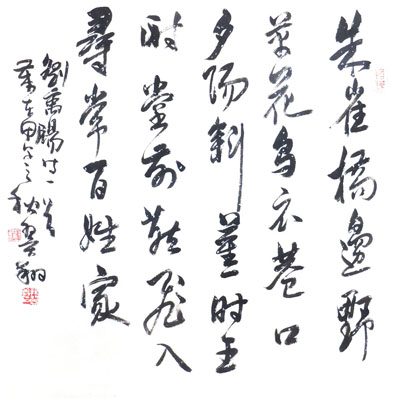 朱雀橋邊野
草花烏衣巷口
夕陽斜舊時王
謝堂前燕飛入
尋常百姓家
劉禹錫詩一首
歲在甲午之秋